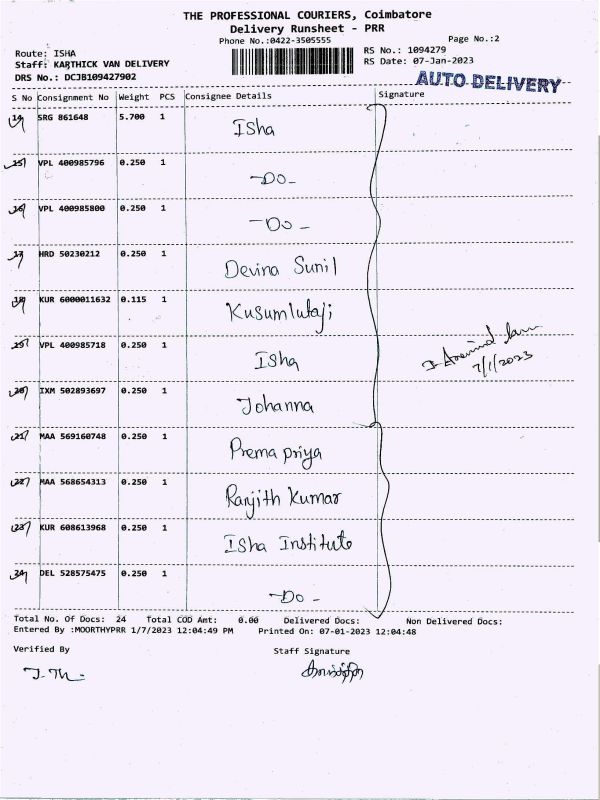 THE PROFESSIONAL COURIERS, Coimbatore
Delivery Runsheet - PRR
Phone No.:0422-3505555
Page No.:2
Route: ISHA
Staff: KARTHICK VAN DELIVERY
DRS No.: DCJB109427902
RS No.: 1094279
RS Date: 07-Jan-2023
AUTO DELIVERY
S No Consignment No Weight PCS Consignee Details Signature
14 SRG 861648 5.700 1 Isha
15 VPL 400985796 0.250 1 -Do-
16 VPL 400985800 0.250 1 -Do-
17 HRD 50230212 0.250 1 Devina Sunil
18 KUR 6000011632 0.115 1 Kusumlutaji
19 VPL 400985718 0.250 1 Isha
7/1/2023
20 IXM 502893697 0.250 1 Johanna
21 MAA 569160748 0.250 1 Prema priya
22 MAA 568654313 0.250 1 Ranjith Kumar
23 KUR 608613968 0.250 1 Isha Institute
24 DEL 528575475 0.250 1 -Do-
Total No. Of Docs: 24 Total COD Amt: 0.00 Delivered Docs: Non Delivered Docs:
Entered By :MOORTHYPRR 1/7/2023 12:04:49 PM Printed On: 07-01-2023 12:04:48
Verified By Staff Signature